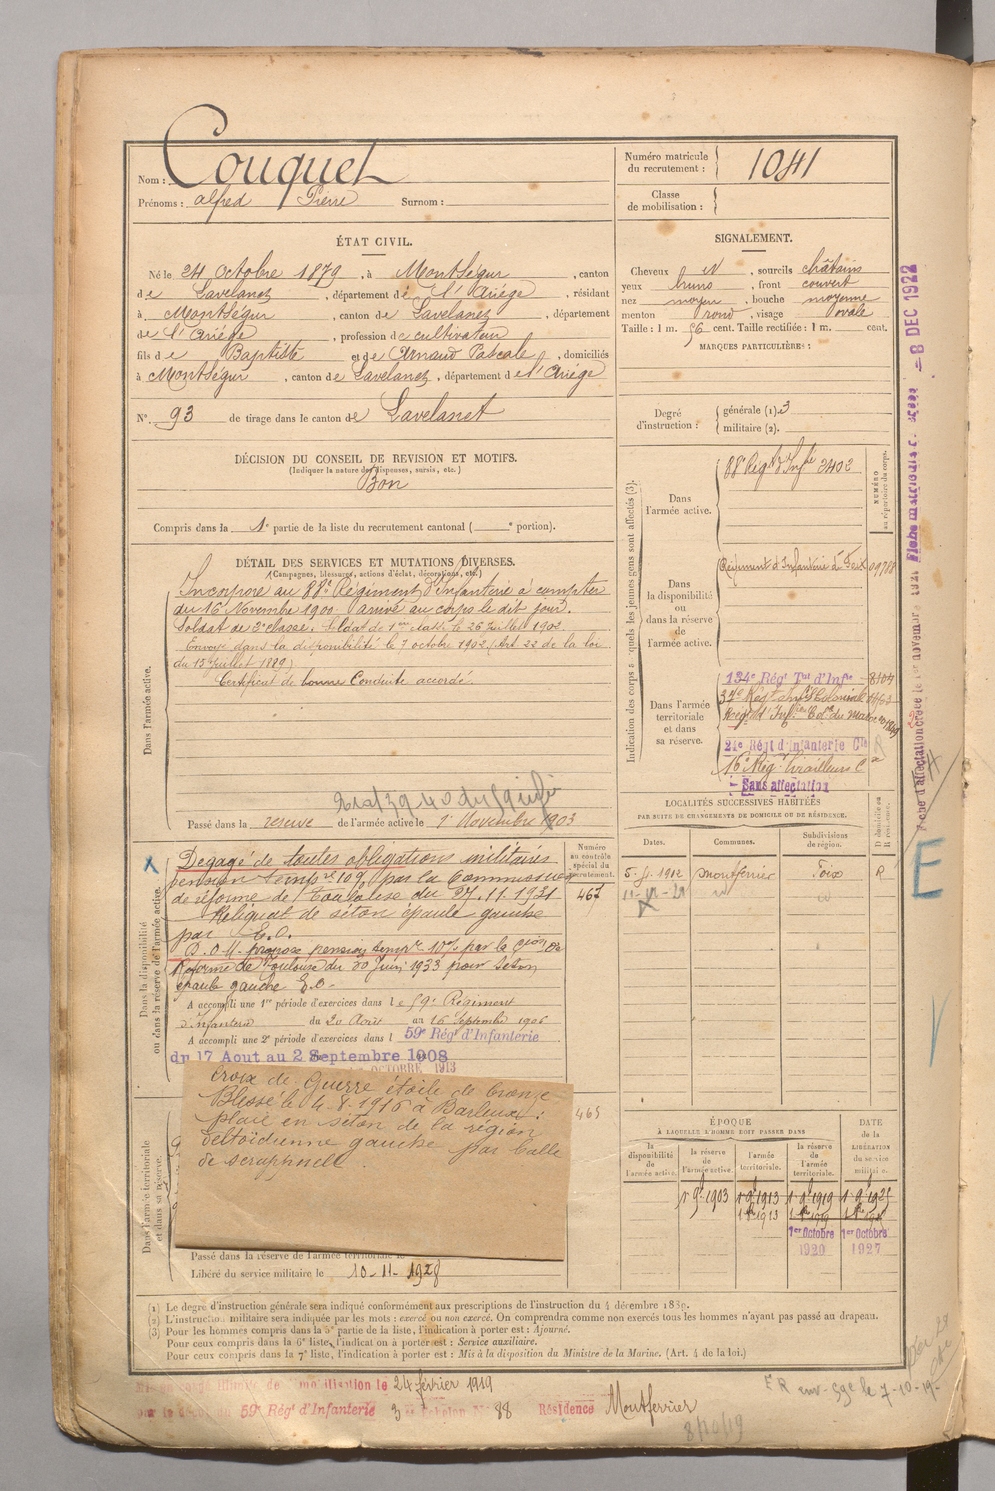 Nom : Couquet
Prénoms : Alfred Pierre Surnom :
Numéro matricule du recrutement : 1041
Classe de mobilisation :
ÉTAT CIVIL.
Né le 24 Octobre 1879, à Montségur, canton
de Lavelanet, département de l'Ariége, résidant
à Montségur, canton de Lavelanet, département
de l'Ariége, profession de cultivateur
fils de Baptiste et de Arnaud Pascale, domiciliés
à Montségur, canton de Lavelanet, département de l'Ariége
N° 93 de tirage dans le canton de Lavelanet
SIGNALEMENT.
Cheveux , sourcils châtains
yeux bruns, front couvert
nez moyen, bouche moyenne
menton rond, visage ovale
Taille : 1 m. 56 cent. Taille rectifiée : 1 m. cent.
MARQUES PARTICULIÈRES :
Degré d'instruction : générale (1). 3
militaire (2).
DÉCISION DU CONSEIL DE REVISION ET MOTIFS.
(Indiquer la nature des dispenses, sursis, etc.)
Bon
Compris dans la 1e partie de la liste du recrutement cantonal ( e portion).
DÉTAIL DES SERVICES ET MUTATIONS DIVERSES.
(Campagnes, blessures, actions d'éclat, décorations, etc.)
Dans l'armée active.
Incorporé au 88e Régiment d'Infanterie à compter
du 16 Novembre 1900. arrivé au corps le dit jour.
Soldat de 2e classe. Soldat de 1ere classe le 26 Juillet 1902.
Envoyé dans la disponibilité le 7 octobre 1902 (Art 22 de la loi
du 15 Juillet 1889)
Certificat de bonne Conduite accordé.
Passé dans la réserve de l'armée active le 1er Novembre 1903
Indication des corps auxquels les jeunes gens sont affectés (3).
NUMÉRO au répertoire du corps.
Dans l'armée active.
88e Régt d'Infie 2402
Dans la disponibilité ou dans la réserve de l'armée active.
Régiment d'Infanterie de Foix 09788
Dans l'armée territoriale et dans sa réserve.
134e Régt Tal d'Infie 8404
37e Régt Infie Coloniale
Régt d'Infie Cle du Maroc
21e Régt d'Infanterie Cle
16e Régt Tirailleurs
Sans affectation
Dans la disponibilité ou dans la réserve de l'armée active.
Dégagé de toutes obligations militaires
pension tempre 10% par la Commission
de réforme de Toulouse du 27.11.1931
Reliquat de séton épaule gauche
par E.O.
D.O.M. propose pension tempre 10% par la Cion de
Réforme de Toulouse du 30 Juin 1933 pour séton
épaule gauche E.O.
A accompli une 1re période d'exercices dans le 59e Régiment
d'Infanterie du 20 Août au 16 Septembre 1906
A accompli une 2e période d'exercices dans l 59e Régt d'Infanterie
du 17 Aout au 2 Septembre 1908
OCTOBRE 1913
Numéro au contrôle spécial du recrutement.
467
465
LOCALITÉS SUCCESSIVES HABITÉES
PAR SUITE DE CHANGEMENTS DE DOMICILE OU DE RÉSIDENCE.
Dates. Communes. Subdivisions de région. D domicile ou R résidence.
1912 Montferrier Foix R
Croix de Guerre étoile de bronze
Blessé le 4-8-1916 à Barleux :
plaie en séton de la région
deltoïdienne gauche par balle
de scrapnell.
Dans l'armée territoriale et dans sa réserve.
Passé dans la réserve de l'armée territoriale le
Libéré du service militaire le 10-11-1928
ÉPOQUE
À LAQUELLE L'HOMME DOIT PASSER DANS
la disponibilité de l'armée active. la réserve de l'armée active. l'armée territoriale. la réserve de l'armée territoriale.
DATE de la LIBÉRATION du service militaire.
1 9bre 1903 1 9bre 1913 1 9bre 1919 1 9bre 1925
1er Octobre 1920 1er Octobre 1927
(1) Le degré d'instruction générale sera indiqué conformément aux prescriptions de l'instruction du 4 décembre 1889.
(2) L'instruction militaire sera indiquée par les mots : exercé ou non exercé. On comprendra comme non exercés tous les hommes n'ayant pas passé au drapeau.
(3) Pour les hommes compris dans la 5e partie de la liste, l'indication à porter est : Ajourné.
Pour ceux compris dans la 6e liste, l'indication à porter est : Service auxiliaire.
Pour ceux compris dans la 7e liste, l'indication à porter est : Mis à la disposition du Ministre de la Marine. (Art. 4 de la loi.)
mobilisation le 24 février 1919
59e Régt d'Infanterie 3e Echelon N° 88 Résidence Montferrier
8/10/19
8 DEC 1922
E